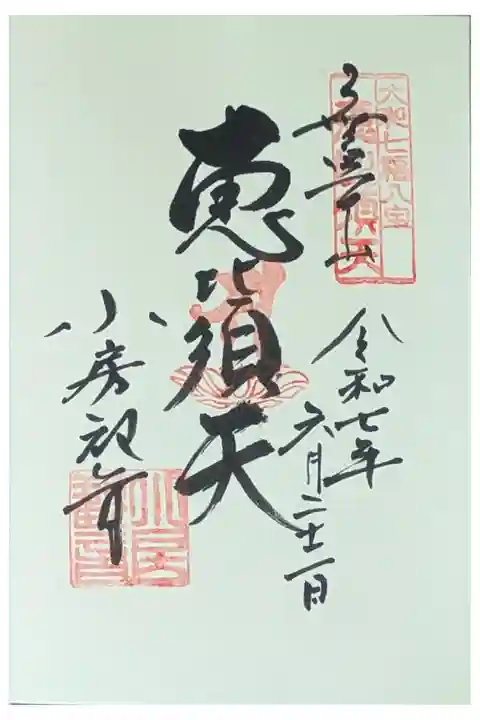 大和七福八宝
恵比須天
令和七年
六月二十二日
小房観音